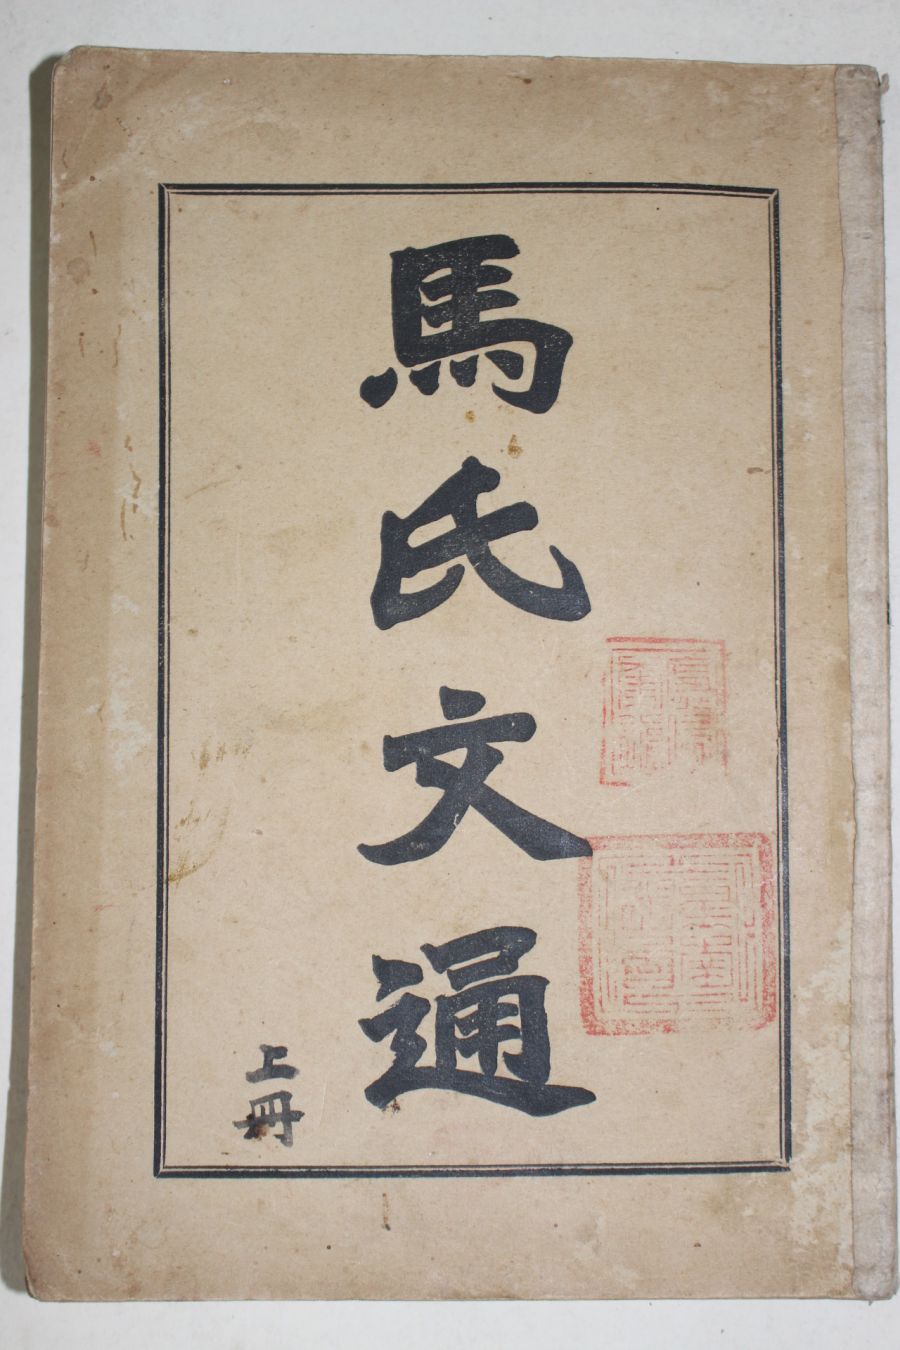 馬氏文通
上冊